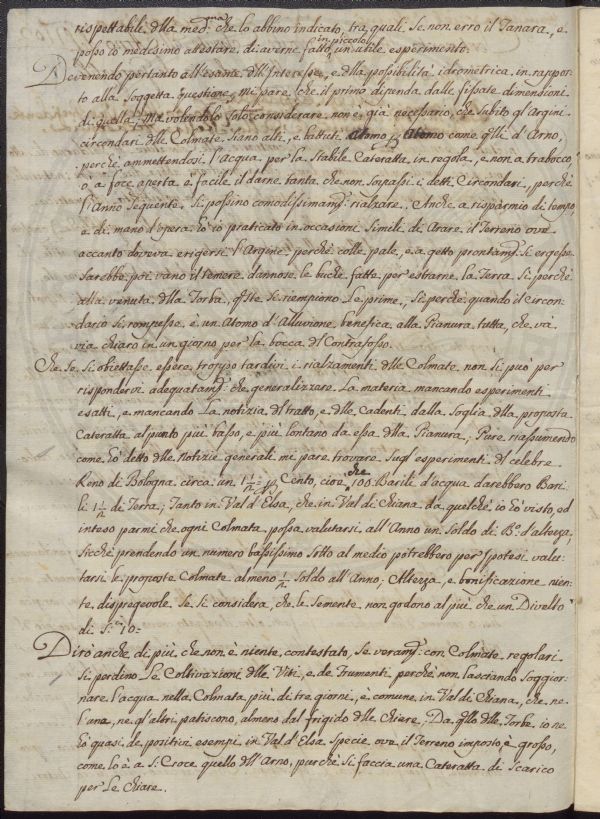 rispettabile dlla med.ma che lo abbino indicato, tra quali se non erro il Tanara, e
posso io medesimo attestare di averne fatto in piccolo un utile esperimento.
Devenendo pertanto all'esame dll'Interesse, e dlla possibilità idrometrica in rappor-
to alla Soggetta questione, mi pare, che il primo dipenda dalle fissate dimensioni
di quella; Ma volendolo solo considerare non è già necessario, che subito gl'Argini
circondari dlle Colmate siano alti, e battuti Atomo p. Atomo come q.lli d'Arno,
perchè ammettendosi l'acqua per la stabile Cateratta in regola, e non a trabocco,
o a foce aperta è facile il darne tanta che non sorpassi i detti Circondari, perchè
l'Anno sequente si possino comodissimam. rialzare. Anche a risparmio di tempo,
e di mano d'opera hò io praticato in occasioni simili di Arare il Terreno ove
accanto doveva erigersi l'Argine perchè colle pale, e a getto prontam. si ergesse.
Sarebbe poi vano il temere dannose le buche fatte per estrarne la Terra, si perchè
alla venuta dlla Torba, q.ste si riempiono le prime, si perchè quando il circon-
dario si rompesse, è un Atomo d'Alluvione benefica alla Pianura tutta, che và
via chiaro in un giorno per la bocca dl Contrafosso.
Che se si obiettasse essere troppo tardivi i rialzamenti dlle Colmate non si può per
rispondervi adequatam. che generalizzare la materia mancando esperimenti
esatti, e mancando la notizia dl tratto, e dlle cadenti dalla soglia dlla proposta
Cateratta al punto più basso, e più lontano da essa dlla Pianura; Pure riassumendo
come hò detto dlle Notizie generali mi pare trovare sugl'esperimenti dl celebre
Reno di Bologna circa un 1 1/2 p. Cento, cioè che 100. Barili d'acqua darebbero Bari-
li 1 1/2 di Terra; Tanto in Val d'Elsa, che in Val di Chiana da quel che io hò visto, ed
inteso parmi che ogni Colmata possa valutarsi all'Anno un Soldo di B.o d'altezza,
sicchè prendendo un numero bassissimo sotto al medio potrebbero per Ipotesi valu-
tarsi le proposte Colmate almeno 1/2 Soldo all'Anno; Altezza, e bonificazione nien-
te dispregevole se si considera, che le semente non godono al più che un Divelto
di S. 10=
Dirò anche di più che non è niente contestato, se veram. con Colmate regolari
si perdino le Coltivazioni dlle Viti, e de Frumenti perchè non lasciando soggior-
nare l'acqua nella Colmata più di tre giorni, è comune in Val di Chiana, che ne
l'una, ne gl'altri patiscono, almeno dal frigido dlle Chiare, Da q.lla dlle Torbe io ne
hò quasi de positivi esempi in Val d'Elsa specie ove il Terreno imposto, è grosso,
come lo è a S. Croce quello dll'Arno, purchè si faccia una Cateratta di scarico
per le Chiare.